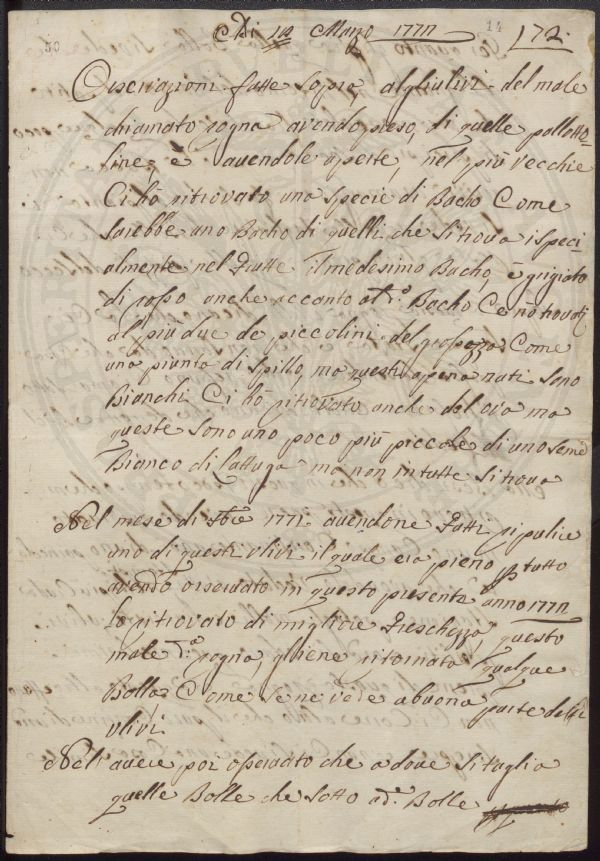 Di 14 Marzo 1777
14
172.
53
Osservazioni fatte sopra algliulivi del male
chiamato rogna avendo preso, di quelle pallotto-
line, e avendole aperte, nel più vecchie
Ci hò ritrovato una specie di Bacho Come
sarebbe uno Bacho di quelli che si trova ispeci-
almente nel Frutte il medesimo Bacho, è grigiato
di rosso anche accanto al d.º Bacho Ce nò trovati
al più due de piccolini del grossezza Come
una piunta di spillo, ma questi apena nati sono
Bianchi Ci hò ritrovato anche dal ova ma
queste sono uno poco più piccole di uno seme
Bianco di Lattuga ma non in tutte si trova
Nel mese di 1771 avendone Fatti ripulire
uno di questi ulivi il quale era pieno p tutto
avendo osservato in questo presente anno 1777
lo ritrovato di migliore Freschezza, questo
male d.º rogna, gliene ritornata qualque
Bolla, Come se ne vede a buona parte delli
ulivi.
Nell avere poi osservato che a dove si taglia
quelle Bolle che sotto ad.º Bolle